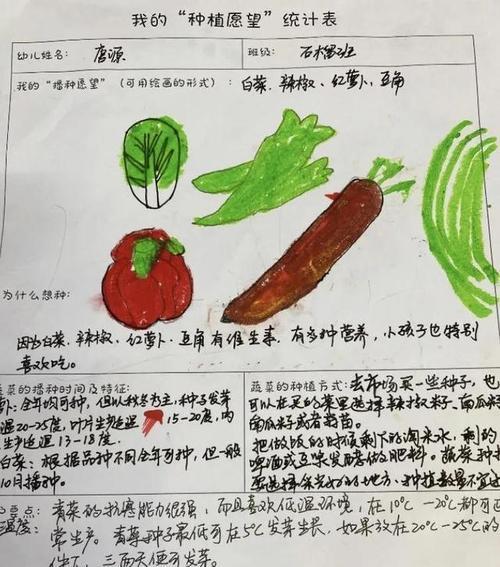 我的“种植愿望”统计表
幼儿姓名： 唐源 班级： 石榴班
我的“播种愿望”（可用绘画的形式）：白菜、辣椒、红萝卜、豆角
为什么想种：
因为白菜、辣椒、红萝卜、豆角有维生素，有多种营养，小孩子也特别
喜欢吃。
蔬菜的播种时间及特征：
卜：全年均可种，但以秋冬为主，种子发芽
温20-25度，叶片生长适温15-20度，肉
生长适温13-18度。
白菜：根据品种不同全年可种，但一般
10月播种。
蔬菜的种植方式：去市场买一些种子，也
可以在买的菜里选择辣椒籽、南瓜籽
南瓜籽或者番茄
把做饭的时候剩下的淘米水，剩的
啤酒或豆浆发酵做肥料。蔬菜种
选择 光好的地方，种植数量不宜
点：青菜的抗寒能力很强，而且喜欢低温环境，在10℃-20℃都可正
温度：常生产。青菜种子最低可在5℃发芽生长，如果放在20℃-25℃的
件下，三两天便可发芽。